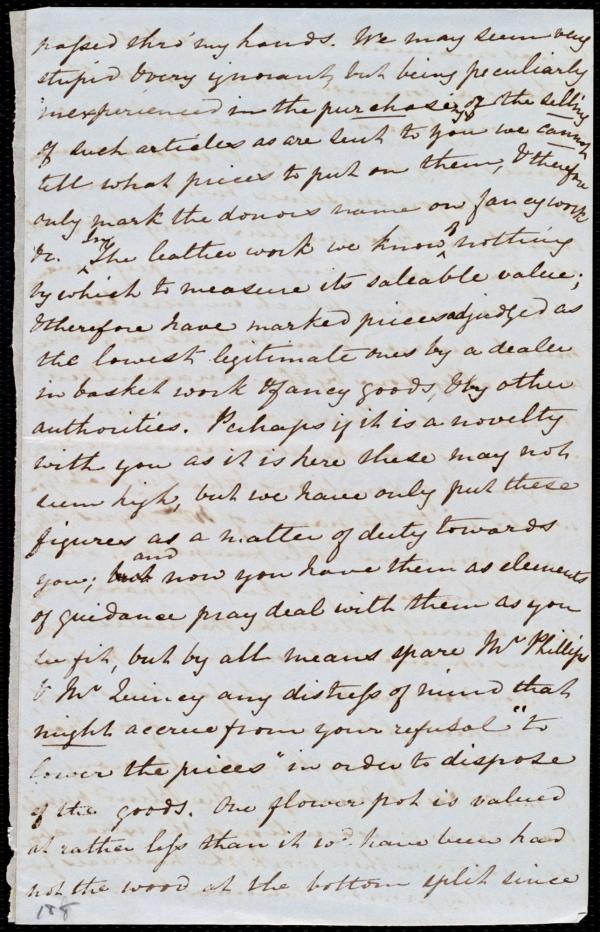 passed thro' my hands. We may seem very
stupid & very ignorant, but being peculiarly
inexperienced in the purchase, or the selling
of such articles as are sent to you we cannot
tell what prices to put on them, & therefore
only mark the donors name on fancy work
&c. In the leather work we know of nothing
by which to measure its saleable value;
& therefore have marked prices adjudged as
the lowest legitimate ones by a dealer
in basket work & fancy goods, & by other
authorities. Perhaps if it is a novelty
with you as it is here these may not
seem high, but we have only put these
figures as a matter of duty towards
you; and now you have them as elements
of guidance pray deal with them as you
see fit, but by all means spare Mr Phillips
& Mr Quincy any distress of mind that
might accrue from your refusal "to
lower the prices" in order to dispose
of the goods. One flower pot is valued
at rather less than it wd. have been had
not the wood at the bottom split since
188